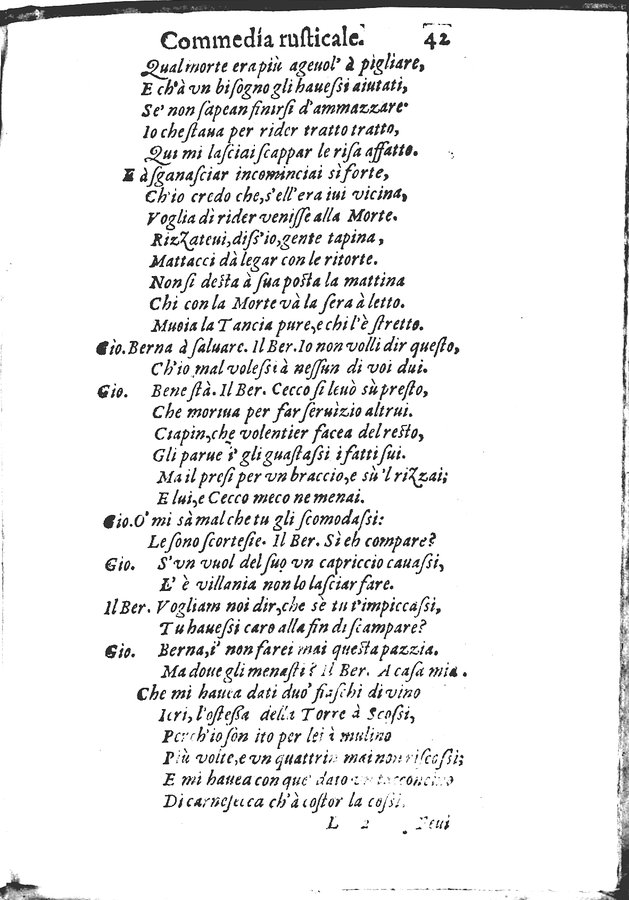 Commedia rusticale. 42
Qual morte era più ageuol' à pigliare,
E ch'à vn bisogno gli hauessi aiutati,
Se' non sapean finirsi d'ammazzare
Io che staua per rider tratto tratto,
Qui mi lasciai scappar le risa affatto.
E à sganasciar incominciai sì forte,
Ch'io credo che, s'ell'era iui vicina,
Voglia di rider venisse alla Morte.
Rizzateui, diss'io, gente tapina,
Mattacci dà legar con le ritorte.
Non si desta à sua posta la mattina
Chi con la Morte và la sera à letto.
Muoia la Tancia pure, e chi l'è stretto.
Gio. Berna à saluare. Il Ber. Io non volli dir questo,
Ch'io mal volessi à nessun di voi dui.
Gio. Bene stà. Il Ber. Cecco si leuò sù presto,
Che mortua per far seruizio altrui.
Ciapin, che volentier facea del resto,
Gli parue i' gli guastassi i fatti sui.
Ma il presi per vn braccio, e sù 'l rizzai;
E lui, e Cecco meco ne menai.
Gio. O' mi sà mal che tu gli scomodassi:
Le sono scortesie. Il Ber. Sì eh compare?
Gio. S'vn vuol del suo vn capriccio cauassi,
E' è villania non lo lasciar fare.
Il Ber. Vogliam noi dir, che sè tu t'impiccassi,
Tu hauessi caro alla fin di scampare?
Gio. Berna, i' non farei mai questa pazzia.
Ma doue gli menasti? Il Ber. A casa mia.
Che mi hauea dati duo' fiaschi di vino
Ieri, l'ostessa della Torre à Scossi,
Perch'io son ito per lei à mulino
Più volte, e vn quattrin mai non riscossi;
E mi hauea con que' dato vn tocconcino
Di carnesecca ch'à costor la cossi.
L 2 Beui